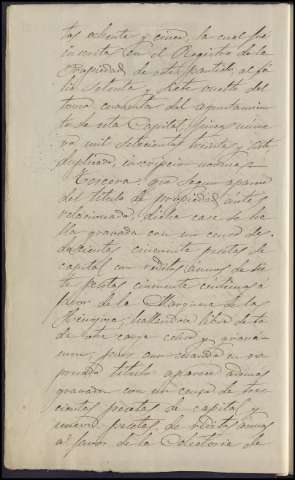 tos ochenta y cinco, la cual fue
inscrita en el Registro de la
Propiedad de este partido, al fo
lio setenta y siete vuelto del
tomo cuarenta del ayuntamien
to de esta Capital, finca núme
ro mil setecientos treinta y siete
duplicado, inscripción
Tercera: que segun aparece
del titulo de propiedad antes
relacionado, dicha casa se ha
lla gravada con un censo de
doscientas cincuenta pesetas de
capital con reditos anuos de sie
te pesetas cincuenta centimos á
favor de la Marquesa de las
Hormazas, hallandose libre de to
da otra carga censo y gravá
men, pues aun cuando en su
privado titulo aparece ademas
gravada con un censo de tres
cientas pesetas de capital y
nueve pesetas, de reditos anuos
á favor de la Colecturia de